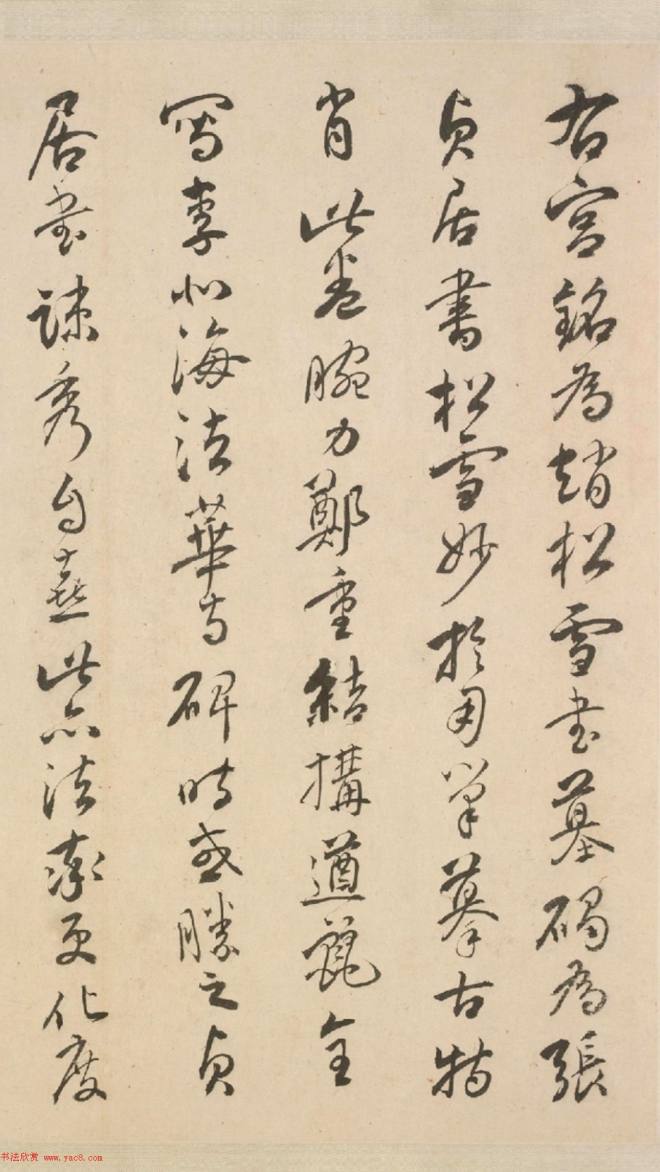 右宫銘為趙松雪書墓碣為張
貞居書松雪妙於用筆摹古特
肖此卷腕力鄭重結構遒麗全
寫李北海法華寺碑時或勝之貞
居書踈秀自喜此亦法率更化度
书法欣赏 www.yac8.com